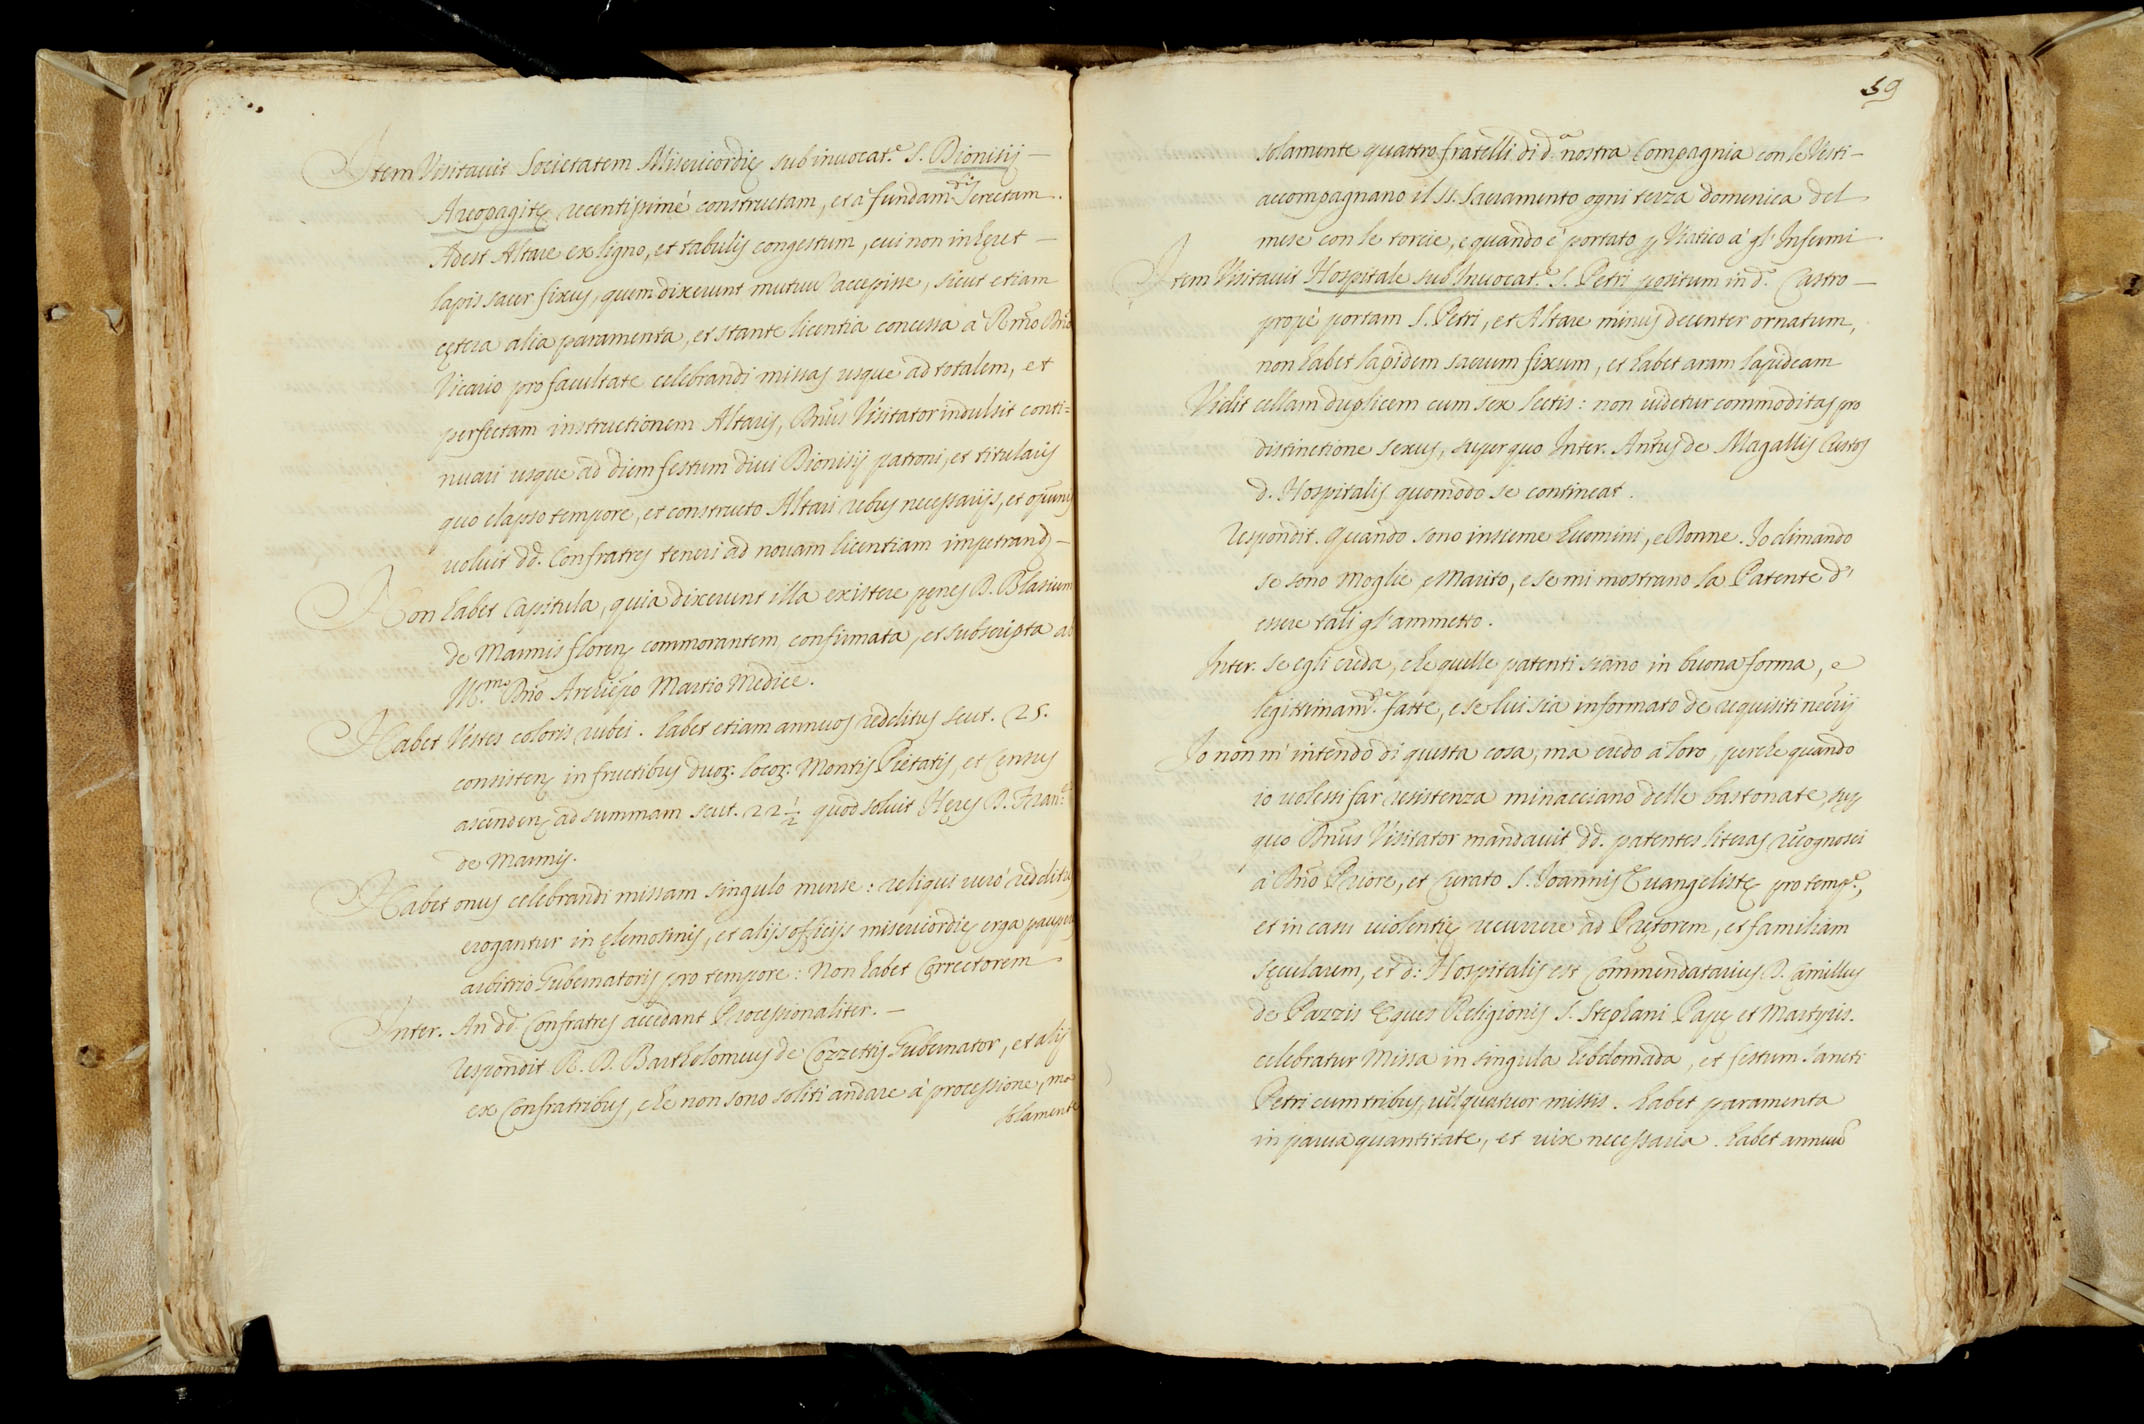 Item Visitauit Societatem Misericordię sub inuocat.e S. Dionisij –
Areopagitę recentissimè constructam, et à fundam.tis erectam.
Adest Altare ex ligno, et tabulis congestum, cui non inhęret –
lapis sacer fixus, quem dixerunt mutuu accepisse, sicut etiam
cętera alia paramenta, et stante licentia concessa à Rmo Dno
Vicario pro facultate celebrandi missas usque ad totalem, et
perfectam instructionem Altaris, Dnus Visitator indulsit conti=
nuari usque ad diem festum diui Dionisij patroni, et titularis
quo elapso tempore, et constructo Altari rebus necessarijs, et
voluit dd. Confratres teneri ad nouam licentiam impetrand –
Non habet Capitula, quia dixerunt illa existere pęnes D. Blasium
de Mannis floren commorantem confirmata, et subscripta ab
Ill.mo Dno Archiepo Martio Medice.
Habet Vestes coloris rubei. habet etiam annuos redditus scut. 25.
consisten in fructibus duor. locor. Montis Pietatis, et Census
ascenden ad summam scut. 22 1/2 quod soluit Heres D. Fran.ci
de Mannis.
Habet onus celebrandi missam singulo mense: reliqui uerò redditus
erogantur in ęlemosinis, et alijs officijs misericordię erga pauperes
arbitrio Gubernatoris pro tempore: Non habet Correctorem
Inter. An dd. Confratres accedant Processionaliter. –
Respondit R. D. Bartholomeus de Cozzettis Gubernator, et alij
ex Confratribus, che non sono soliti andare à processione, ma
solamente
59
solamente quattro fratelli di d.a nostra Compagnia con le Vesti –
accompagnano il SS. Sacramento ogni terza domenica del
mese con le torcie, e quando è portato p Viatico à gl' Infermi
Item Visitauit Hospitale sub Inuocat.e S. Petri positum in d. Castro –
propè portam S. Petri, et Altare minus decenter ornatum,
non habet lapidem sacrum fixum, et habet aram lapideam
Vidit cellam duplicem cum sex lectis: non uidetur commoditas pro
distinctione sexus, super quo Inter. Antus de Magallis Custos
d. Hospitalis quomodo se contineat.
Respondit. Quando sono insieme huomini, e Donne. Io dimando
se sono Moglie, e Marito, e se mi mostrano la Patente d'
essere tali gl' ammetto.
Inter. se egli creda, che quelle patenti siano in buona forma, e
legittimam.te fatte, e se lui sia informato de requisiti necrij
Io non m' intendo di questa cosa, ma credo à loro, perche quando
io uolessi far resistenza minacciano delle bastonate, sup
quo Dnus Visitator mandauit dd. patentes literas recognosci
à Dno Priore, et Curato S. Joannis Euangelistę pro temp.e,
et in casu uiolentię recurrere ad Prętorem, et familiam
sęcularem, et d: Hospitalis est Commendatarius D. Camillus
de Pazzis Eques Religionis S. Stephani Papę et Martyris.
celebratur Missa in singula hebdomada, et festum Sancti
Petri cum tribus, uel quatuor missis. habet paramenta
in parua quantitate, et uix necessaria. habet annuu